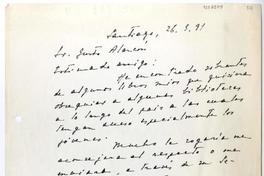 Santiago, 26.3.91
Sr. Justo Alarcón
Estimado amigo:
He encontrado sobrantes
de algunos libros míos que quisiera
obsequiar a algunas bibliotecas
a lo largo del país a las cuales
tengan acceso especialmente los
jóvenes.
Mucho le rogaría me
aconsejara al respecto o me
a través de su